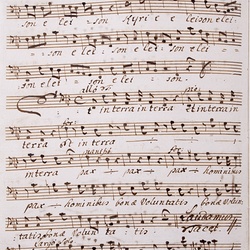 son e lei = son Kyrie e leison elei
son e lei = son elei = son elei =
son = elei = son elei = = = son.
et in terra in terra et in terra in
terra et in terra
in terra pax + pax + pax hominibus
pax + hominibus bonæ Voluntatis bonæ Volun
tatis bonæ Volun ta = tis Laudamus
tacet